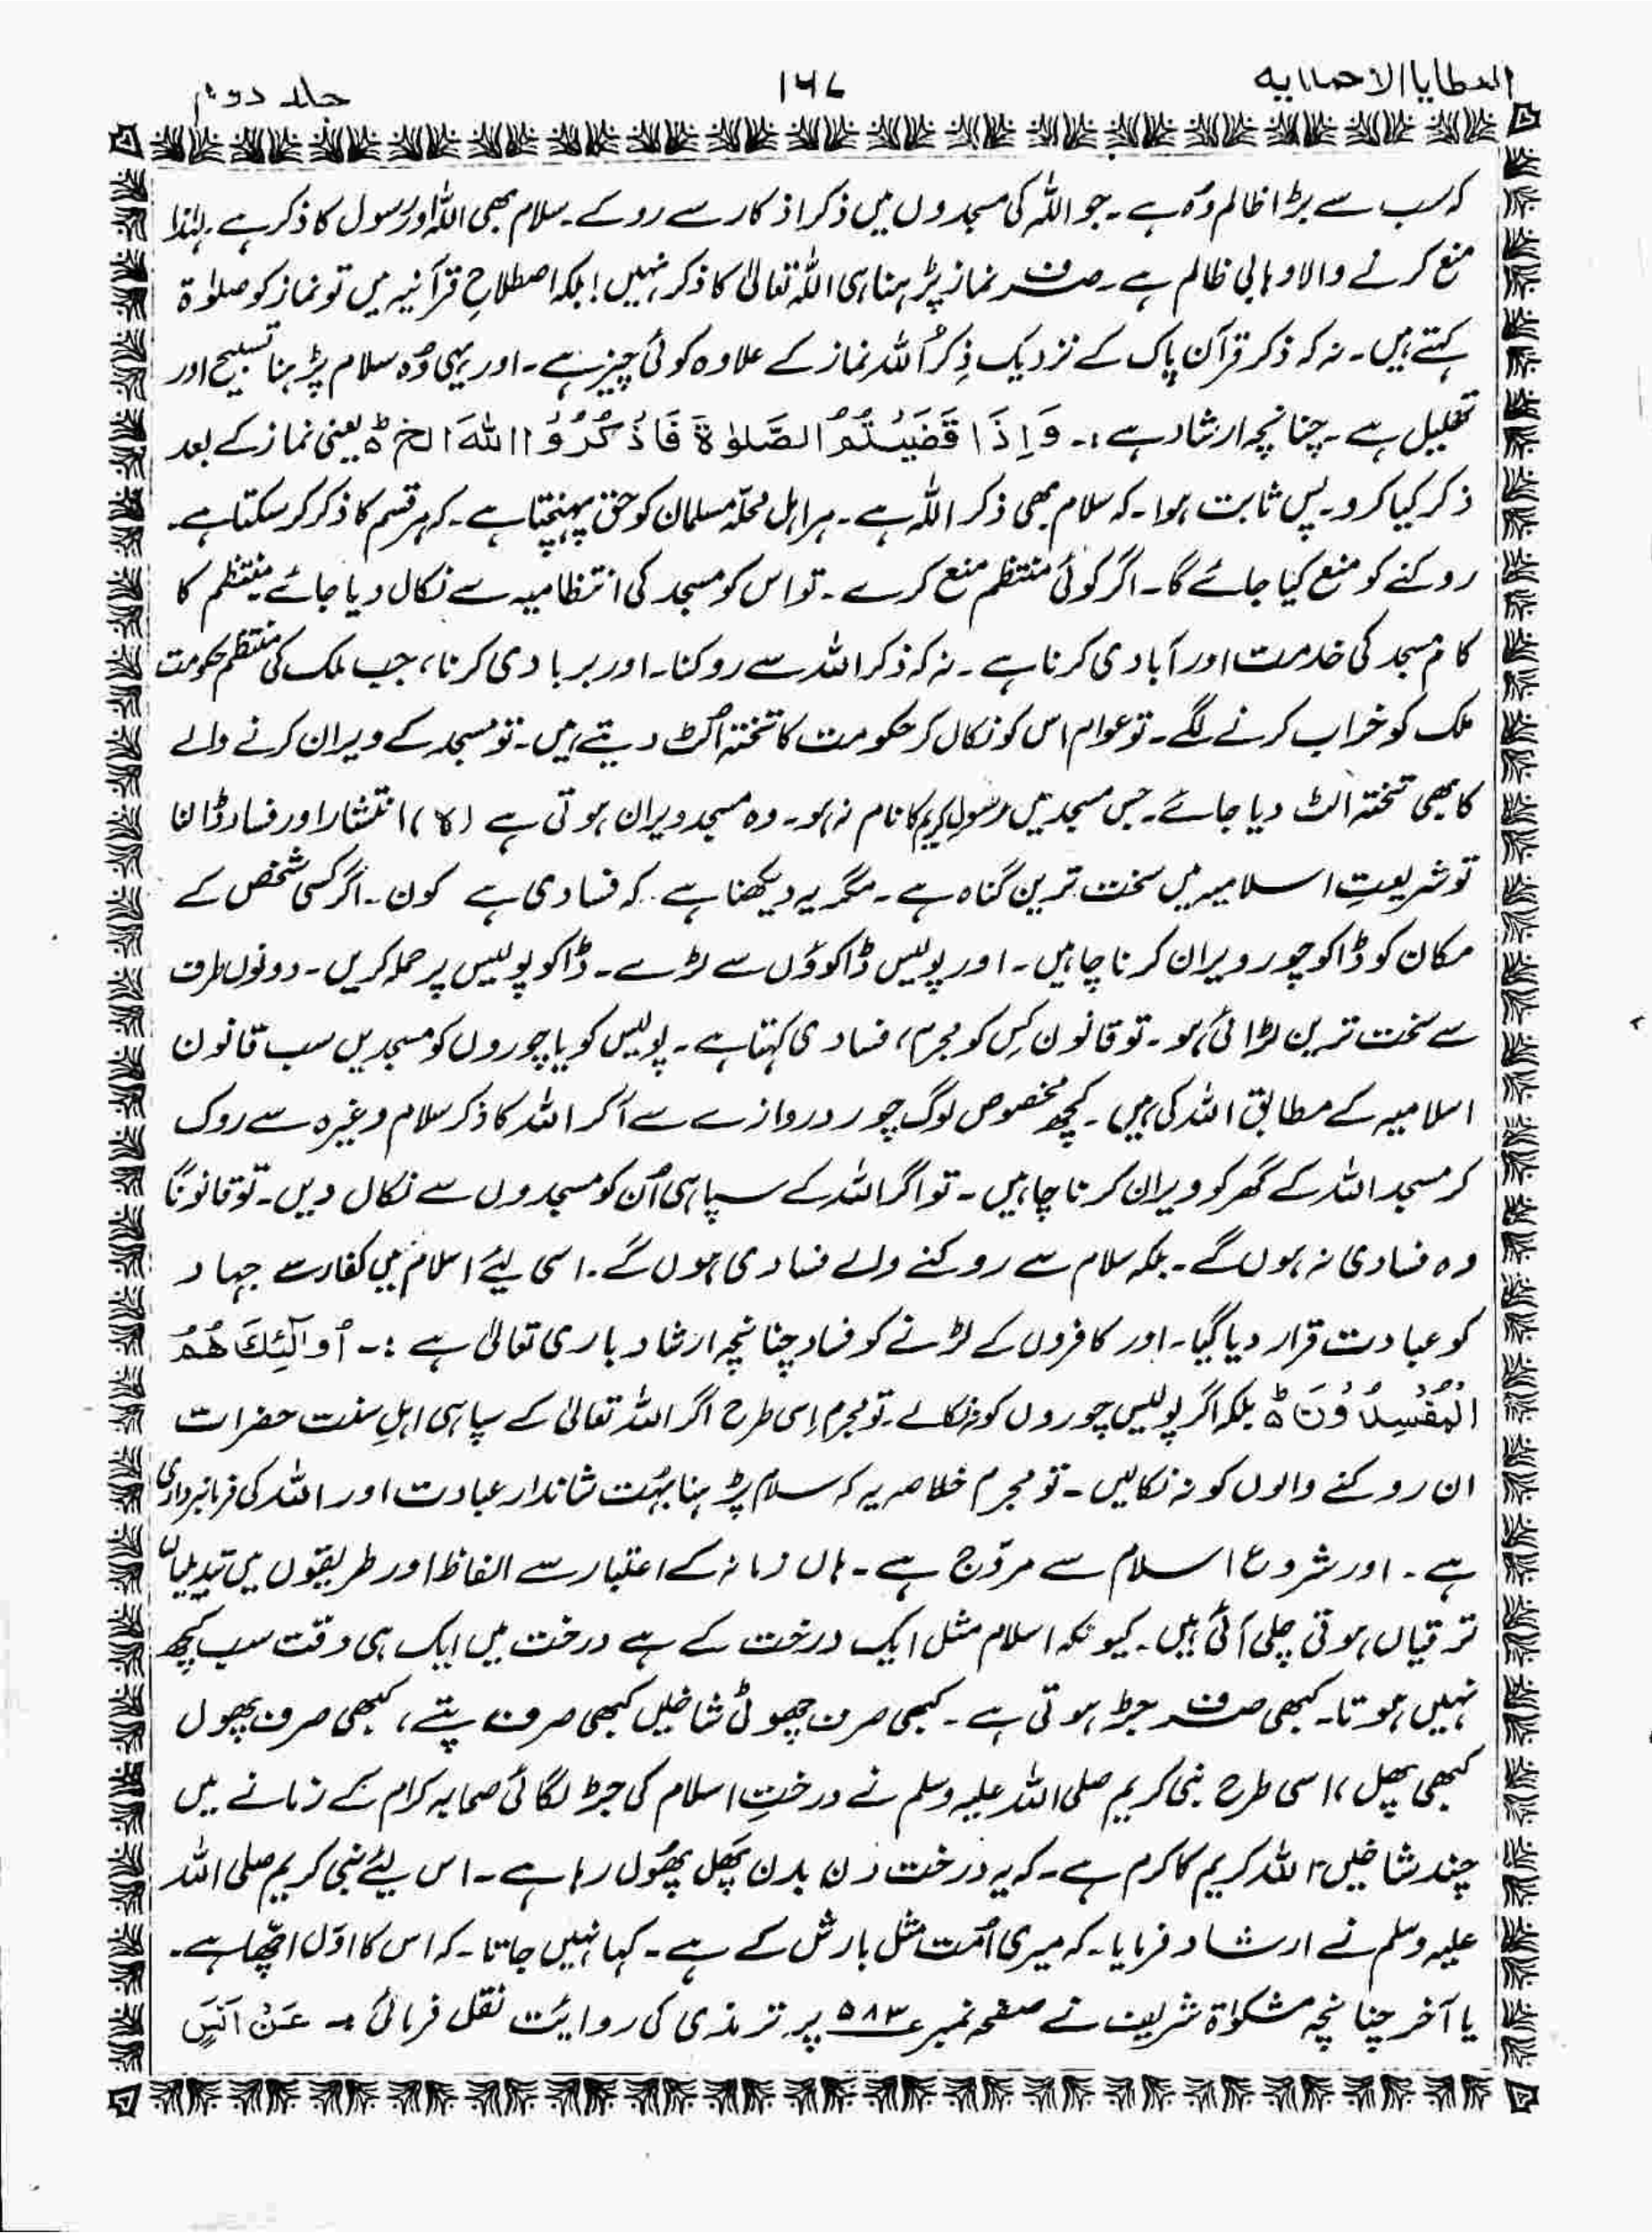 العطایا الاحمدیہ ۱۶۷ جلد دوم
کہ سب سے بڑا ظالم وُہ ہے۔ جو اللہ کی مسجدوں میں ذکر اذکار سے روکے۔ سلام بھی اللہ اور رسول کا ذکر ہے۔ لہٰذا
منع کرنے والا وہابی ظالم ہے۔ صرف نماز پڑہنا ہی اللہ تعالیٰ کا ذکر نہیں! بلکہ اصطلاحِ قرآنیہ میں تو نماز کو صلوٰۃ
کہتے ہیں۔ نہ کہ ذکر قرآن پاک کے نزدیک ذِکرُ اللہ نماز کے علاوہ کوئی چیز ہے۔ اور یہی وُہ سلام پڑہنا تسبیح اور
تھلیل ہے۔ چنانچہ ارشاد ہے :۔ وَاِذَا قَضَيْتُمُ الصَّلوٰةَ فَاذْكُرُوْا اللهَ الخ ۵ یعنی نماز کے بعد
ذکر کیا کرو۔ پس ثابت ہوا۔ کہ سلام بھی ذکر اللہ ہے۔ ہر اہل محلہ مسلمان کو حق پہنچتا ہے۔ کہ ہر قسم کا ذکر کر سکتا ہے۔
روکنے کو منع کیا جائے گا۔ اگر کوئی منتظم منع کرے۔ تو اس کو مسجد کی انتظامیہ سے نکال دیا جائے منتظم کا
کام مسجد کی خدمت اور آبادی کرنا ہے۔ نہ کہ ذکر اللہ سے روکنا۔ اور بربادی کرنا، جب ملک کی منتظم حکومت
ملک کو خراب کرنے لگے۔ تو عوام اس کو نکال کر حکومت کا تختہ اُلٹ دیتے ہیں۔ تو مسجد کے ویران کرنے والے
کا بھی تختہ الٹ دیا جائے۔ جس مسجد میں رسولِ کریم کا نام نہ ہو۔ وہ مسجد ویران ہوتی ہے (۷) انتشار اور فساد ڈانا
تو شریعتِ اسلامیہ میں سخت ترین گناہ ہے۔ مگر یہ دیکھنا ہے کہ فسادی ہے کون۔ اگر کسی شخص کے
مکان کو ڈاکو چور ویران کرنا چاہیں۔ اور پولیس ڈاکوؤں سے لڑے۔ ڈاکو پولیس پر حملہ کریں۔ دونوں طرف
سے سخت ترین لڑائی ہو۔ تو قانون کِس کو مجرم، فسادی کہتا ہے۔ پولیس کو یا چوروں کو مسجدیں سب قانون
اسلامیہ کے مطابق اللہ کی ہیں۔ کچھ مخصوص لوگ چور دروازے سے آکر اللہ کا ذکر سلام وغیرہ سے روک
کر مسجد اللہ کے گھر کو ویران کرنا چاہیں۔ تو اگر اللہ کے سپاہی اُن کو مسجدوں سے نکال دیں۔ تو قانونًا
وہ فسادی نہ ہوں گے۔ بلکہ سلام سے روکنے والے فسادی ہوں گے۔ اسی لیے اسلام میں کفار سے جہاد
کو عبادت قرار دیا گیا۔ اور کافروں کے لڑنے کو فساد چنانچہ ارشاد باری تعالیٰ ہے :۔ اُولٰٓئِكَ هُمُ
الْمُفْسِدُوْنَ ۵ بلکہ اگر پولیس چوروں کو نہ نکالے۔ تو مجرم اِسی طرح اگر اللہ تعالیٰ کے سپاہی اہلِ سنت حضرات
ان روکنے والوں کو نہ نکالیں۔ تو مجرم خلاصہ یہ کہ سلام پڑہنا بہُت شاندار عبادت اور اللہ کی فرمانبرداری
ہے۔ اور شروع اسلام سے مروّج ہے۔ ہاں زمانہ کے اعتبار سے الفاظ اور طریقوں میں تبدیلیاں
ترقیاں ہوتی چلی آئی ہیں۔ کیونکہ اسلام مثل ایک درخت کے ہے درخت میں ایک ہی وقت سب کچھ
نہیں ہوتا۔ کبھی صرف جڑ ہوتی ہے۔ کبھی صرف چھوٹی شاخیں کبھی صرف پتے، کبھی صرف پھول
کبھی پھل، اسی طرح نبی کریم صلی اللہ علیہ وسلم نے درختِ اسلام کی جڑ لگائی صحابہ کرام کے زمانے میں
چند شاخیں، اللہ کریم کا کرم ہے۔ کہ یہ درخت دن بدن پَھل پھُول رہا ہے۔ اس لیئے نبی کریم صلی اللہ
علیہ وسلم نے ارشاد فرمایا۔ کہ میری اُمت مثل بارش کے ہے۔ کہا نہیں جاتا۔ کہ اس کا اوّل اچھا ہے۔
یا آخر چنانچہ مشکوٰۃ شریف نے صفحہ نمبر ۵۸۳ پر ترمذی کی روایَت نقل فرمائی ۔ عَنْ اَنَسٍ